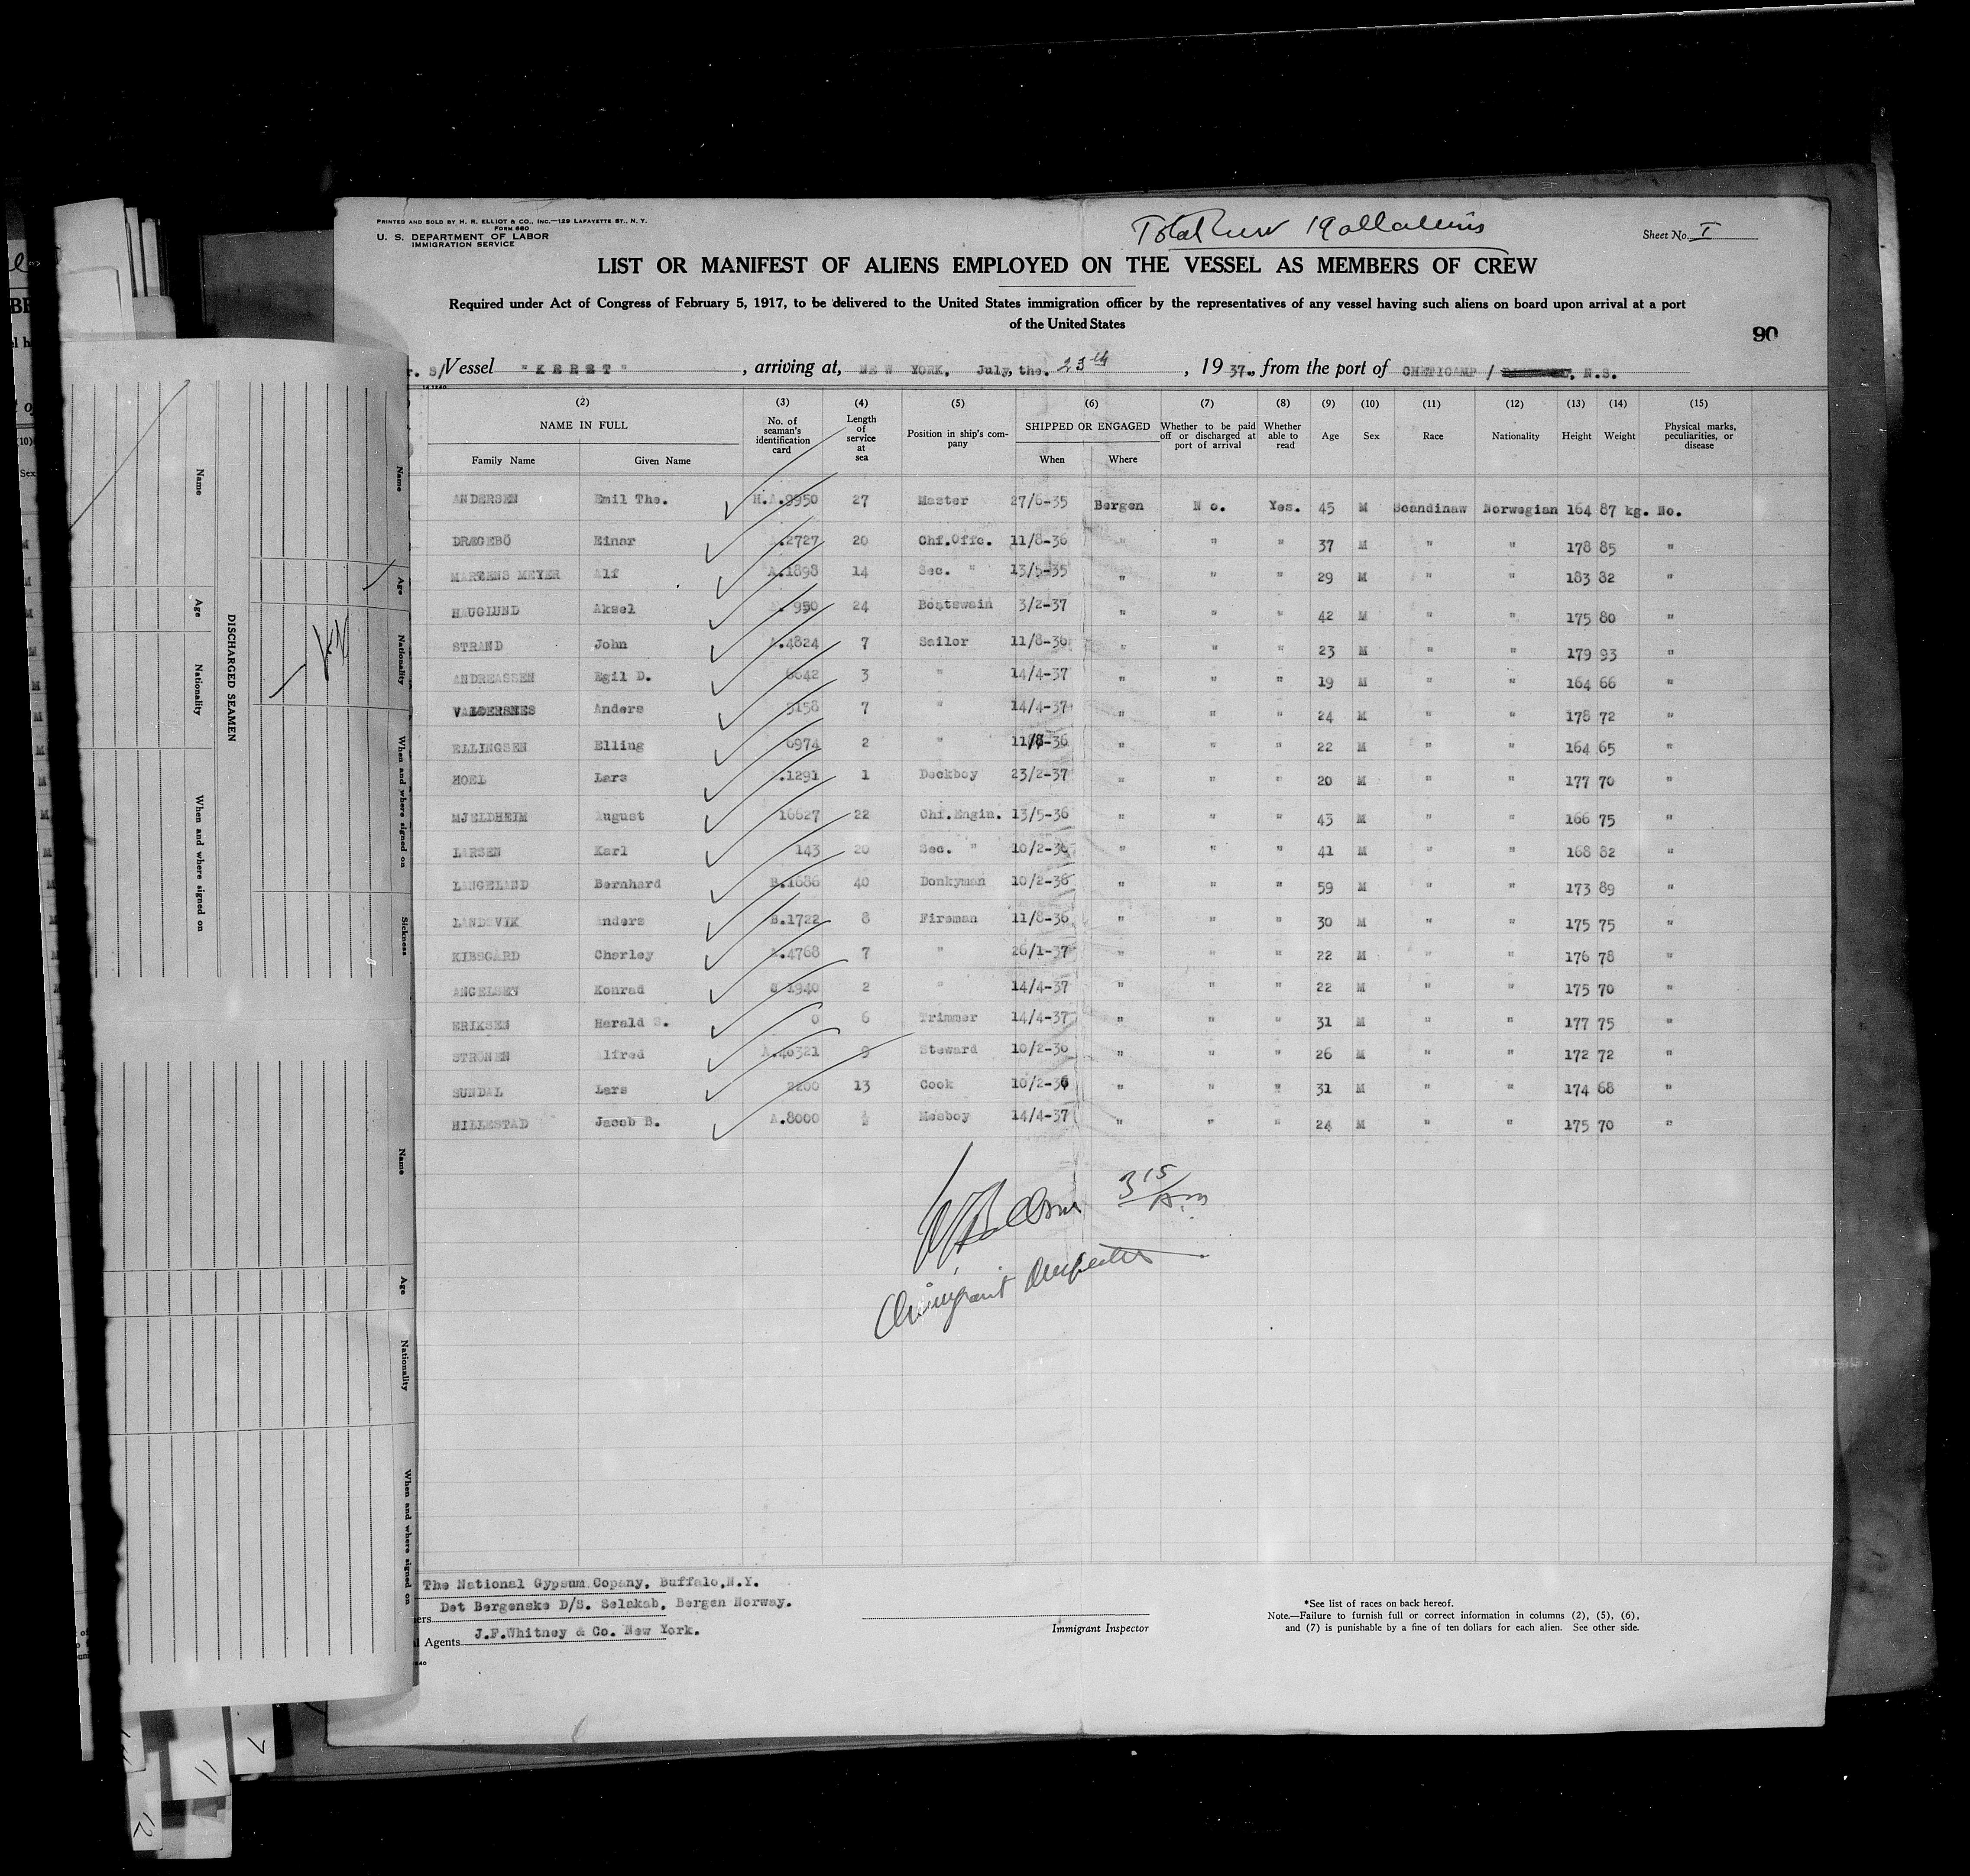 PRINTED AND SOLD BY H. R. ELLIOT & CO., INC.—129 LAFAYETTE ST., N. Y.
FORM 680
U. S. DEPARTMENT OF LABOR
IMMIGRATION SERVICE
Total Crew 19 all aliens
Sheet No. I
LIST OR MANIFEST OF ALIENS EMPLOYED ON THE VESSEL AS MEMBERS OF CREW
Required under Act of Congress of February 5, 1917, to be delivered to the United States immigration officer by the representatives of any vessel having such aliens on board upon arrival at a port
of the United States
90
r. s/ Vessel "KERET", arriving at, NEW YORK, July, the. 23th, 1937., from the port of CHETICAMP / N.S.
(2) (3) (4) (5) (6) (7) (8) (9) (10) (11) (12) (13) (14) (15)
NAME IN FULL No. of seaman's identification card Length of service at sea Position in ship's company SHIPPED OR ENGAGED Whether to be paid off or discharged at port of arrival Whether able to read Age Sex Race Nationality Height Weight Physical marks, peculiarities, or disease
Family Name Given Name When Where
ANDERSEN Emil Tho. H.A.9950 27 Master 27/6-35 Bergen No. Yes. 45 M Scandinaw Norwegian 164 87 kg. No.
DRÆGEBÖ Einar .2727 20 Chf.Offc. 11/8-36 " " " 37 M " " 178 85 "
MARTENS MEYER Alf A.1898 14 Sec. " 13/5-35 " " " 29 M " " 183 82 "
HAUGLUND Aksel 950 24 Boatswain 3/2-37 " " " 42 M " " 175 80 "
STRAND John A.4824 7 Sailor 11/8-36 " " " 23 M " " 179 93 "
ANDREASSEN Egil D. 6642 3 " 14/4-37 " " " 19 M " " 164 66 "
VALDERSNES Anders 5158 7 " 14/4-37 " " " 24 M " " 178 72 "
ELLINGSEN Elling 6974 2 " 11/8-36 " " " 22 M " " 164 65 "
HOEL Lars .1291 1 Deckboy 23/2-37 " " " 20 M " " 177 70 "
MJELDHEIM August 16627 22 Chf.Engin. 13/5-36 " " " 43 M " " 166 75 "
LARSEN Karl 143 20 Sec. " 10/2-36 " " " 41 M " " 168 82 "
LANGELAND Bernhard B.1686 40 Donkyman 10/2-36 " " " 59 M " " 173 89 "
LANDSVIK Anders B.1722 8 Fireman 11/8-36 " " " 30 M " " 175 75 "
KIBSGÅRD Charley A.4768 7 " 26/1-37 " " " 22 M " " 176 78 "
ANGELSEN Konrad 1940 2 " 14/4-37 " " " 22 M " " 175 70 "
ERIKSEN Harald S. 0 6 Trimmer 14/4-37 " " " 31 M " " 177 75 "
STRÖNEN Alfred A.40321 9 Steward 10/2-36 " " " 26 M " " 172 72 "
SUNDAL Lars 2200 13 Cook 10/2-36 " " " 31 M " " 174 68 "
HILLESTAD Jacob B. A.8000 ½ Mesboy 14/4-37 " " " 24 M " " 175 70 "
3 15 A.M
Immigrant Inspector
The National Gypsum Copany, Buffalo, N.Y.
ers Det Bergenske D/S. Selskab, Bergen Norway.
l Agents J.F.Whitney & Co. New York.
Immigrant Inspector
*See list of races on back hereof.
Note.—Failure to furnish full or correct information in columns (2), (5), (6),
and (7) is punishable by a fine of ten dollars for each alien. See other side.
DISCHARGED SEAMEN
Name Age Nationality When and where signed on
Name Age Nationality When and where signed on Sickness
Name Age Nationality When and where signed on
7
11
12